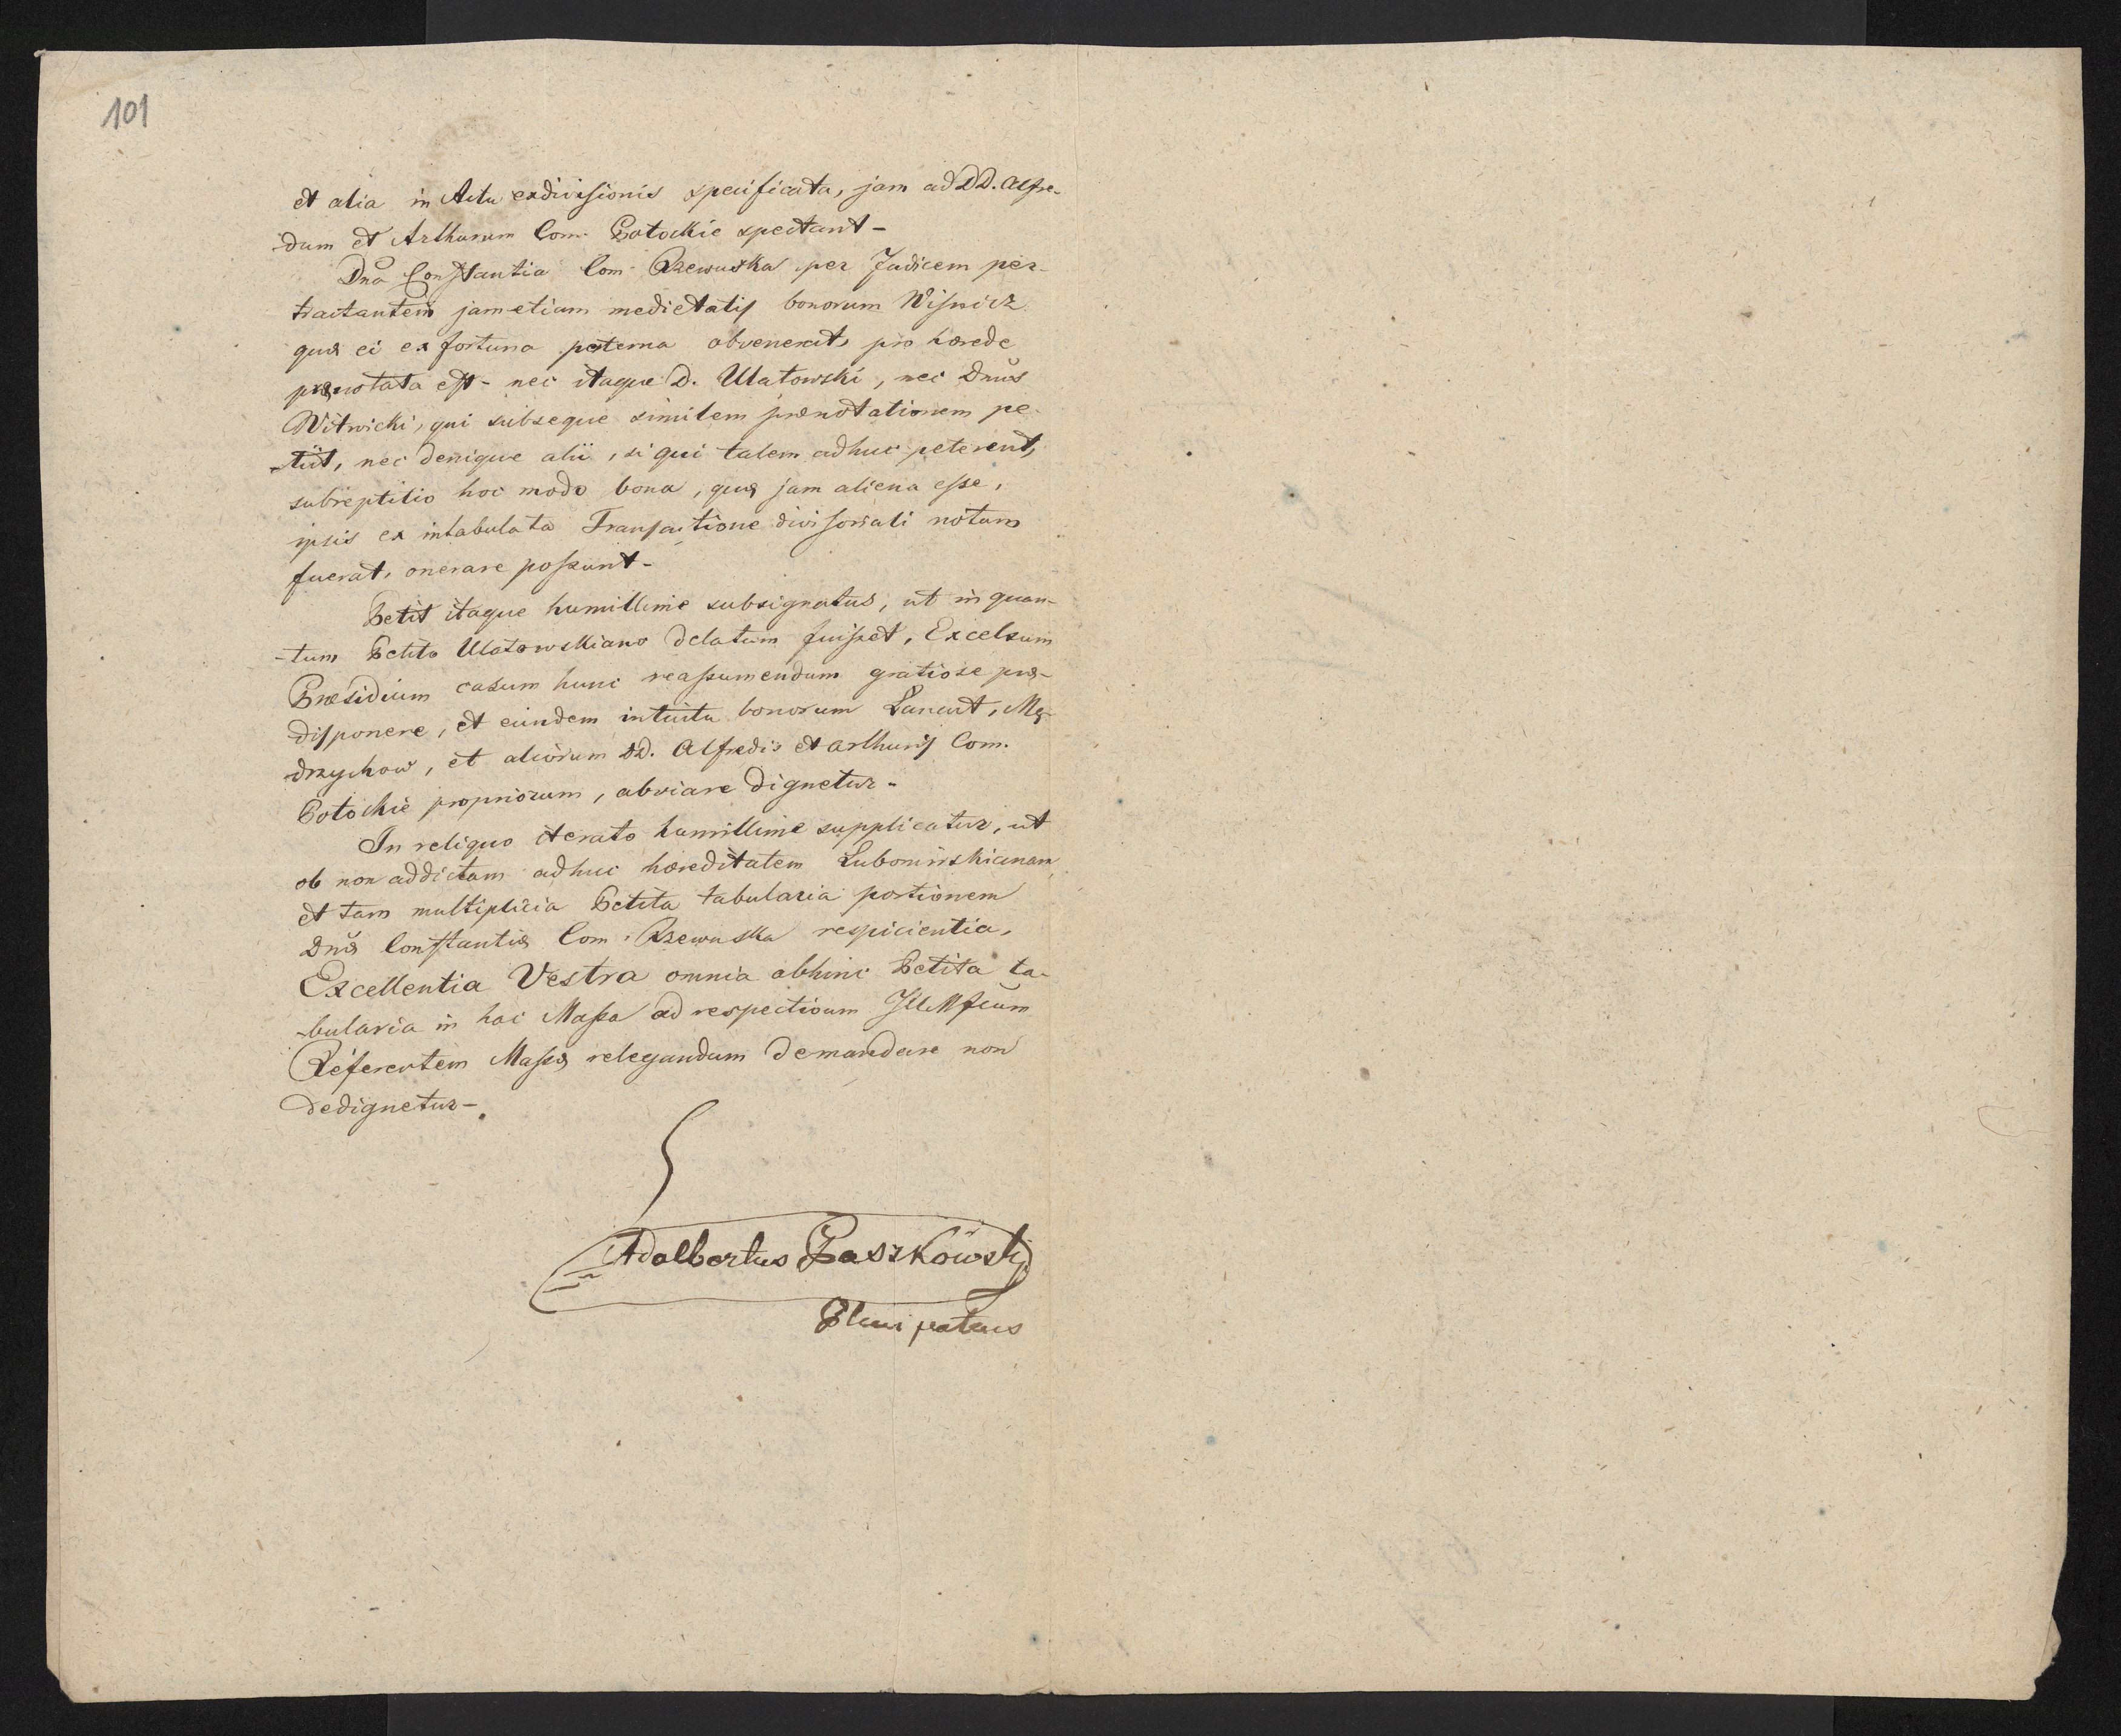 101
et alia in Actu exdivisionis specificata, jam ad DD. Alfre-
dum et Arthurum Com. Potockie spectant -
Dna Constantia Com. Rzewuska per Judicem per-
tractantem jam etiam medietatis bonorum Wisnicz
quæ ei ex fortuna paterna obvenerat, pro hærede
prænotata est - nec itaque D. Ulatowski, nec Dnus
Witwicki, qui subseque similem prænotationem pe-
-tiit, nec denique alii, si qui talem adhuc peterent,
subreptitio hoc modo bona, quæ jam aliena esse,
ipsis ex intabulata Transactione divisoriali notum
fuerat, onerare possunt -
Petit itaque humillime subsignatus, ut in quan-
-tum Petito Ulatowskiano delatum fuisset, Excelsum
Præsidium casum hunc reassumendum gratiose præ-
disponere, et eundem intuitu bonorum Lancut, Mę-
drzychow, et aliorum DD. Alfredi et Arthuri Com.
Potockie propriorum, obviare dignetur -
In reliquo iterato humillime supplicatur, ut
ob non addictam adhuc hæreditatem Lubomirskianam
et tam multiplicia Petita tabularia portionem
Dnæ Constantiæ Com. Rzewuska respicientia,
Excellentia Vestra omnia abhinc Petita ta-
-bularia in hac Massa ad respectivum
Referentem Massæ relegandum demandare non
dedignetur -
Adalbertus Paszkowski
Plenipotens